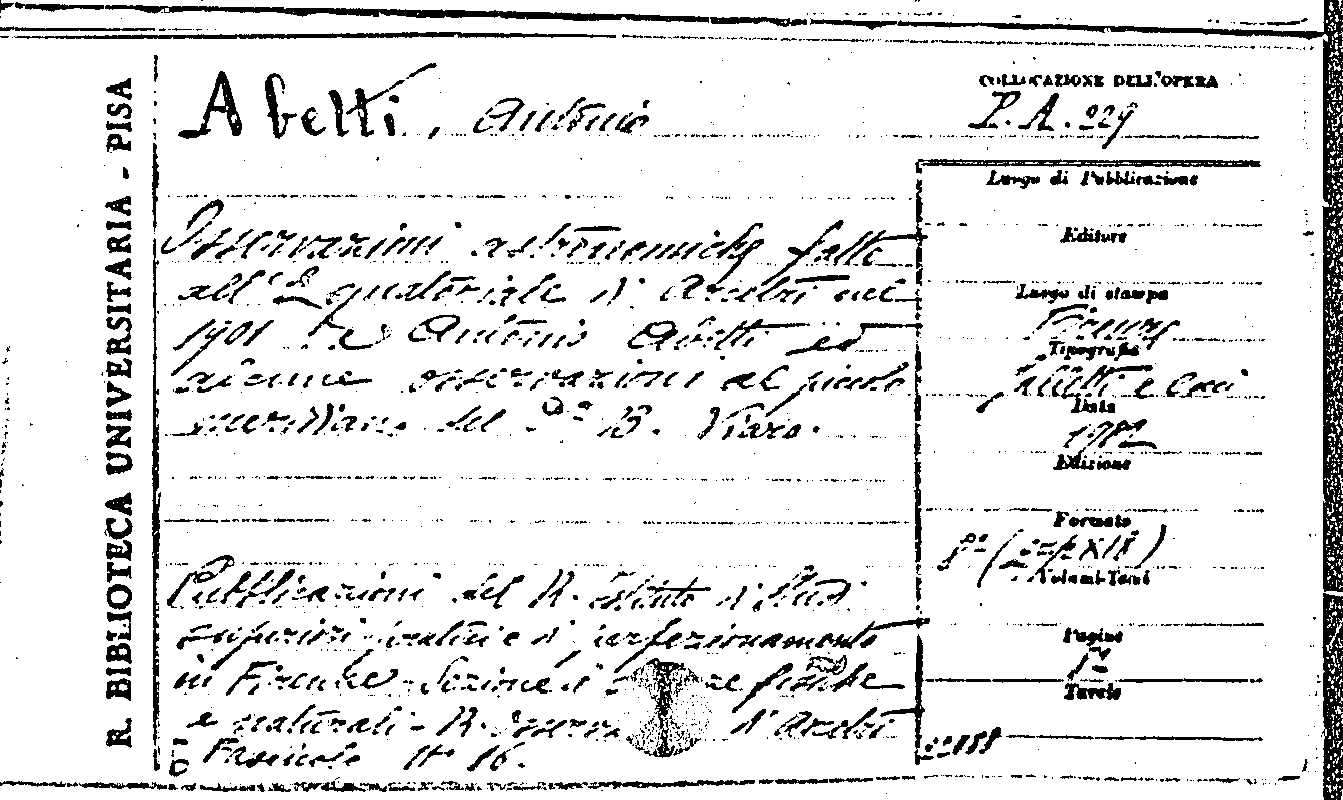 R. BIBLIOTECA UNIVERSITARIA - PISA
Abetti, Antonio
Osservazioni astronomiche fatte
all'Equatoriale d'Arcetri nel
1901 da Antonio Abetti ed
alcune osservazioni al piccolo
meridiano del D.r B. Viaro.
Pubblicazioni del R. Istituto di Studi
superiori pratici e di perfezionamento
in Firenze - Sezione di fisiche
e naturali - R. Osserva d'Arcetri
Fascicolo N.° 16.
COLLOCAZIONE DELL'OPERA
P.A. 229
Luogo di Pubblicazione
Editore
Luogo di stampa
Firenze
Tipografia
Galletti e Cocci
Data
1902
Edizione
Formato
8°
Volumi-Tomi
Pagine
Tavole